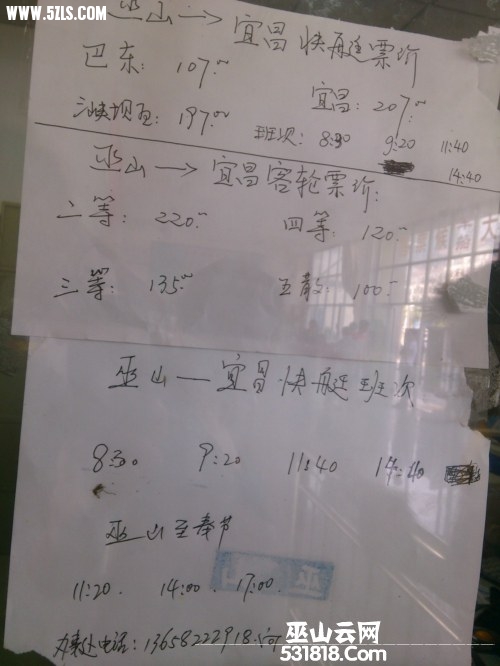 WWW.5ZLS.COM
巫山→宜昌快艇票价
巴东：107.00 宜昌：207.00
三峡坝区：197.00 班次：8:30 9:20 11:40
14:40
巫山→宜昌客轮票价：
二等：220.00 四等：120.00
三等：135.00 五散：100.00
巫山—宜昌快艇班次
8:30 9:20 11:40 14:40
巫山至奉节
11:20 14:00 17:00
办事处电话：13658222918
巫山云网
531818.COM